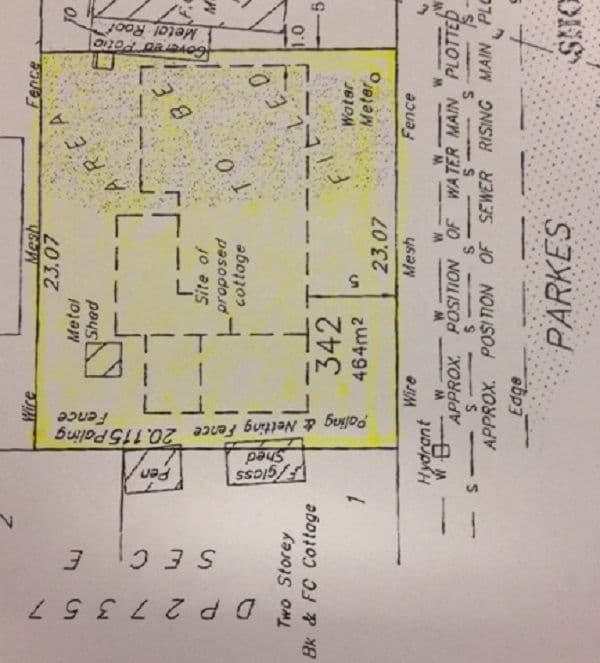 TO
Metal Roof
Covered Patio
1.0
5
Fence
Mesh
Wire
23.07
AREA
TO
BE
FILLED
Water
Meter
Metal
Shed
Site of
proposed
cottage
5
23.07
342
464m²
20.115 Paling
Fence
Paling & Netting Fence
Pen
F/glass
Shed
Wire
Mesh
Fence
Hydrant
W W W W W
APPROX. POSITION OF WATER MAIN PLOTTED
S S S S S
APPROX. POSITION OF SEWER RISING MAIN
Edge
PARKES
2
SEC E
DP 27357
Two Storey
Bk & FC Cottage
1